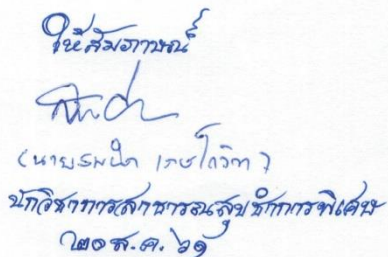 ให้สัมภาษณ์
(นายสมนึก
นักวิชาการสาธารณสุขชำนาญการพิเศษ
๒๐ ส.ค. ๖๑